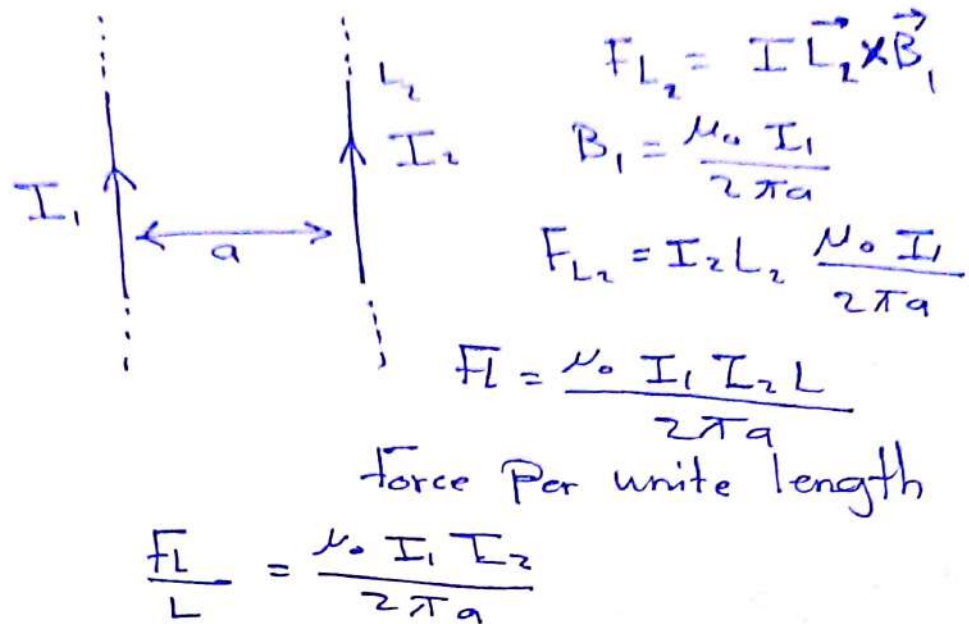 L₂
I₂
I₁
a
F_L₂ = I L⃗₂ × B⃗₁
B₁ = μ₀ I₁ / 2πa
F_L₂ = I₂ L₂ μ₀ I₁ / 2πa
FL = μ₀ I₁ I₂ L / 2πa
force Per unite length
FL / L = μ₀ I₁ I₂ / 2πa